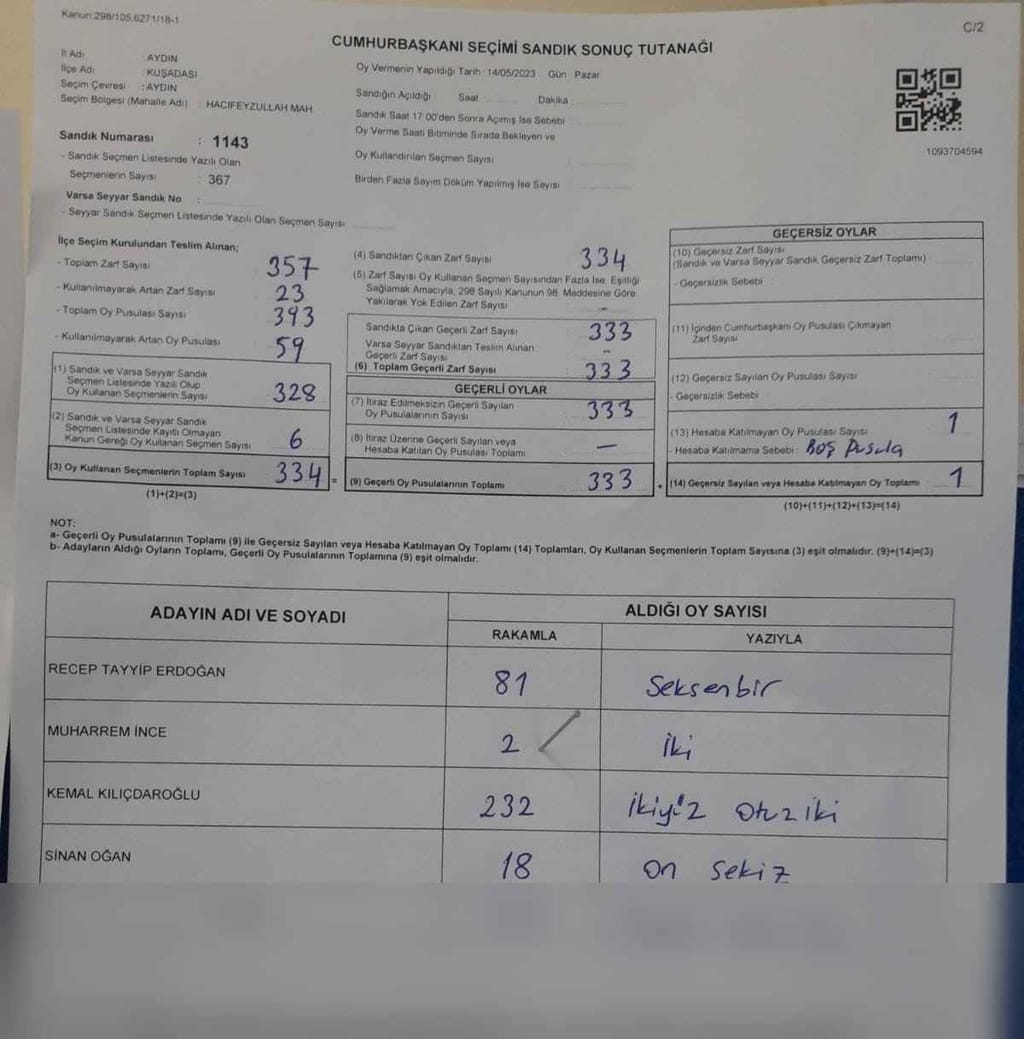 Kanun:298/105,6271/18-1
C/2
CUMHURBAŞKANI SEÇİMİ SANDIK SONUÇ TUTANAĞI
İl Adı : AYDIN
İlçe Adı : KUŞADASI
Seçim Çevresi : AYDIN
Seçim Bölgesi (Mahalle Adı) : HACIFEYZULLAH MAH.
Sandık Numarası : 1143
- Sandık Seçmen Listesinde Yazılı Olan
Seçmenlerin Sayısı : 367
Varsa Seyyar Sandık No :
- Seyyar Sandık Seçmen Listesinde Yazılı Olan Seçmen Sayısı
Oy Vermenin Yapıldığı Tarih :14/05/2023 Gün Pazar
Sandığın Açıldığı Saat : Dakika :
Sandık Saat 17:00'den Sonra Açımış İse Sebebi
Oy Verme Saati Bitiminde Sırada Bekleyen ve
Oy Kullandırılan Seçmen Sayısı
Birden Fazla Sayım Döküm Yapılmış İse Sayısı
1093704594
İlçe Seçim Kurulundan Teslim Alınan;
- Toplam Zarf Sayısı 357
- Kullanılmayarak Artan Zarf Sayısı 23
- Toplam Oy Pusulası Sayısı 393
- Kullanılmayarak Artan Oy Pusulası 59
(1) Sandık ve Varsa Seyyar Sandık
Seçmen Listesinde Yazılı Olup
Oy Kullanan Seçmenlerin Sayısı 328
(2) Sandık ve Varsa Seyyar Sandık
Seçmen Listesinde Kayıtlı Olmayan
Kanun Gereği Oy Kullanan Seçmen Sayısı 6
(3) Oy Kullanan Seçmenlerin Toplam Sayısı 334 =
(1)+(2)=(3)
(4) Sandıktan Çıkan Zarf Sayısı 334
(5) Zarf Sayısı Oy Kullanan Seçmen Sayısından Fazla İse, Eşitliği
Sağlamak Amacıyla, 298 Sayılı Kanunun 98. Maddesine Göre
Yakılarak Yok Edilen Zarf Sayısı -
Sandıkta Çıkan Geçerli Zarf Sayısı 333
Varsa Seyyar Sandıktan Teslim Alınan
Geçerli Zarf Sayısı -
(6) Toplam Geçerli Zarf Sayısı 333
GEÇERLİ OYLAR
(7) İtiraz Edilmeksizin Geçerli Sayılan
Oy Pusulalarının Sayısı 333
(8) İtiraz Üzerine Geçerli Sayılan veya
Hesaba Katılan Oy Pusulası Toplamı -
(9) Geçerli Oy Pusulalarının Toplamı 333 +
GEÇERSİZ OYLAR
(10) Geçersiz Zarf Sayısı
(Sandık ve Varsa Seyyar Sandık Geçersiz Zarf Toplamı)
- Geçersizlik Sebebi
(11) İçinden Cumhurbaşkanı Oy Pusulası Çıkmayan
Zarf Sayısı
(12) Geçersiz Sayılan Oy Pusulası Sayısı
- Geçersizlik Sebebi
(13) Hesaba Katılmayan Oy Pusulası Sayısı 1
- Hesaba Katılmama Sebebi : Boş Pusula
(14) Geçersiz Sayılan veya Hesaba Katılmayan Oy Toplamı 1
(10)+(11)+(12)+(13)=(14)
NOT:
a- Geçerli Oy Pusulalarının Toplamı (9) ile Geçersiz Sayılan veya Hesaba Katılmayan Oy Toplamı (14) Toplamları, Oy Kullanan Seçmenlerin Toplam Sayısına (3) eşit olmalıdır. (9)+(14)=(3)
b- Adayların Aldığı Oyların Toplamı, Geçerli Oy Pusulalarının Toplamına (9) eşit olmalıdır.
ADAYIN ADI VE SOYADI ALDIĞI OY SAYISI
RAKAMLA YAZIYLA
RECEP TAYYİP ERDOĞAN 81 Seksenbir
MUHARREM İNCE 2 İki
KEMAL KILIÇDAROĞLU 232 İkiyüz Otuz iki
SİNAN OĞAN 18 On Sekiz